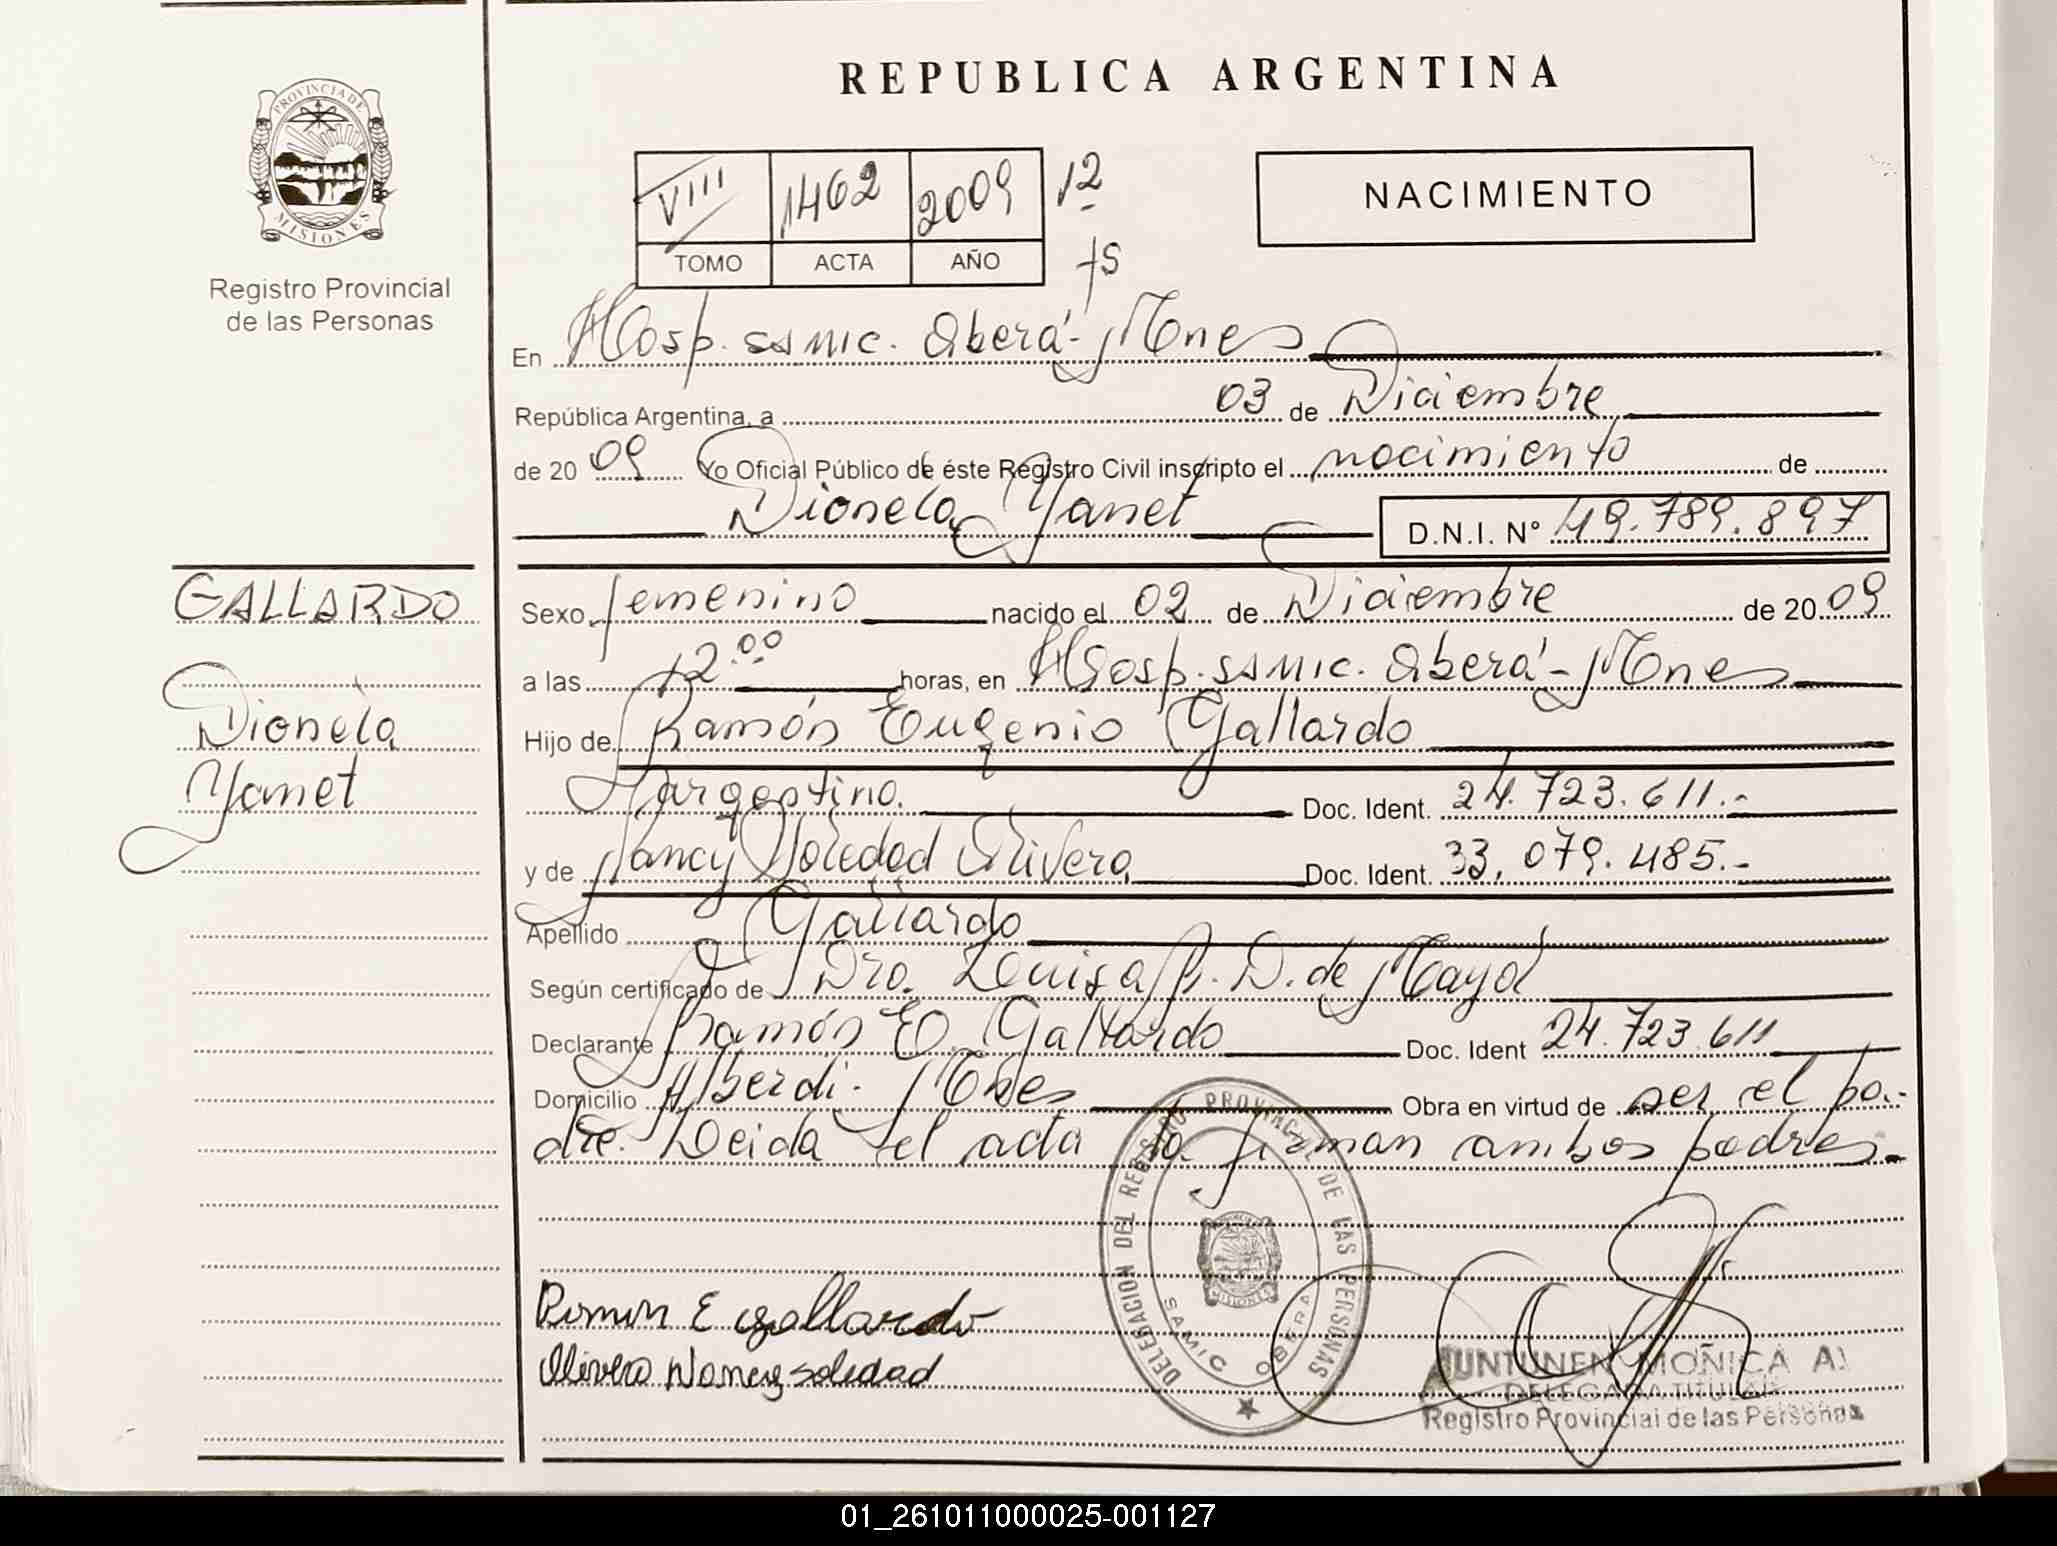 PROVINCIA DE
MISIONES
Registro Provincial
de las Personas
REPUBLICA ARGENTINA
VIII 1462 2009 12
TOMO ACTA AÑO
NACIMIENTO
En Hosp. SAMIC. Oberá - Mnes
República Argentina, a 03 de Diciembre
de 20 09 Yo Oficial Público de éste Registro Civil inscripto el nacimiento de
Dionela Yanet D.N.I. Nº 49.789.897
GALLARDO
Dionela
Yanet
Sexo femenino nacido el 02 de Diciembre de 20 09
a las 12.00 horas, en Hosp. SAMIC. Oberá - Mnes
Hijo de Ramón Eugenio Gallardo
argentino. Doc. Ident. 24.723.611.-
y de Nancy Soledad Olivera Doc. Ident. 33.079.485.-
Apellido Gallardo
Según certificado de Dra. Luisa D. de Mayol
Declarante Ramón E. Gallardo Doc. Ident 24.723.611
Domicilio Alberdi - Mnes Obra en virtud de ser el pa-
dre. Leida el acta la firman ambos padres.-
Ramon E gallardo
Olivera Nancy soledad
DELEGACION DEL REGISTRO PROVINCIAL DE LAS PERSONAS
SAMIC OBERA
MISIONES
JUNTUNEN MOÑICA A.
DELEGADA TITULAR
Registro Provincial de las Personas
01_261011000025-001127